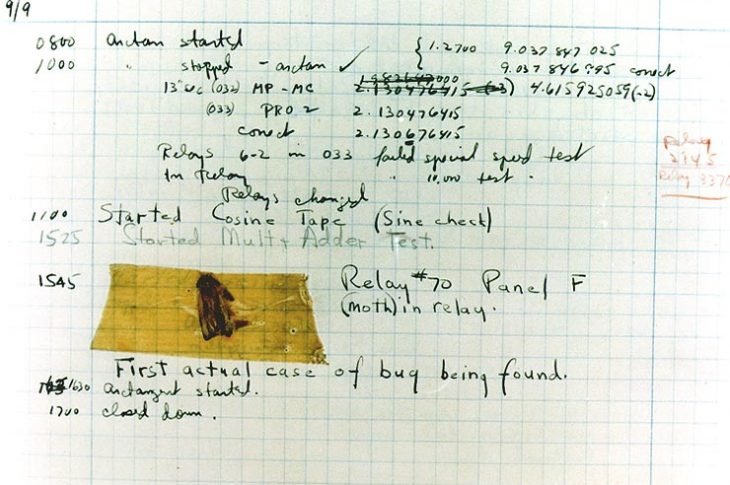 9/9
0800 arctan started { 1.2700 9.037 847 025
1000 " stopped - arctan ✓ 9.037 846 995 correct
13"uc (032) MP - MC 1.982647000 2.130476415 (-3) 4.615925059(-2)
(033) PRO 2 2.130476415
correct 2.130676415
Relays 6-2 in 033 failed special speed test
In Relay " 10,000 test .
Relays changed
1100 Started Cosine Tape (Sine check)
1525 Started Mult+ Adder Test.
1545 Relay #70 Panel F
(moth) in relay.
First actual case of bug being found.
1630 arctangent started.
1700 closed down.
Relay
2145
Relay 3370